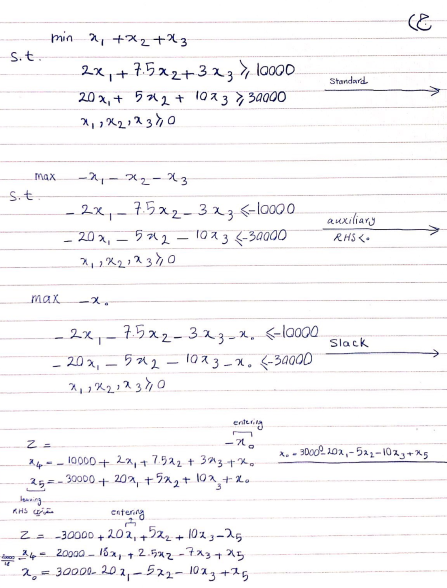 (8
min x₁ + x₂ + x₃
s.t.
2x₁ + 7.5x₂ + 3x₃ ≥ 10000
20x₁ + 5x₂ + 10x₃ ≥ 30000
x₁, x₂, x₃ ≥ 0
Standard
max -x₁ - x₂ - x₃
s.t.
- 2x₁ - 7.5x₂ - 3x₃ ≤ -10000
- 20x₁ - 5x₂ - 10x₃ ≤ -30000
x₁, x₂, x₃ ≥ 0
auxiliary
RHS <0
max -x₀
- 2x₁ - 7.5x₂ - 3x₃ - x₀ ≤ -10000
- 20x₁ - 5x₂ - 10x₃ - x₀ ≤ -30000
x₁, x₂, x₃ ≥ 0
Slack
entering
Z = -x₀
x₄ = -10000 + 2x₁ + 7.5x₂ + 3x₃ + x₀
x₅ = -30000 + 20x₁ + 5x₂ + 10x₃ + x₀
x₀ = 30000 - 20x₁ - 5x₂ - 10x₃ + x₅
leaving
RHS
entering
Z = -30000 + 20x₁ + 5x₂ + 10x₃ - x₅
x₄ = 20000 - 18x₁ + 2.5x₂ - 7x₃ + x₅
x₀ = 30000 - 20x₁ - 5x₂ - 10x₃ + x₅